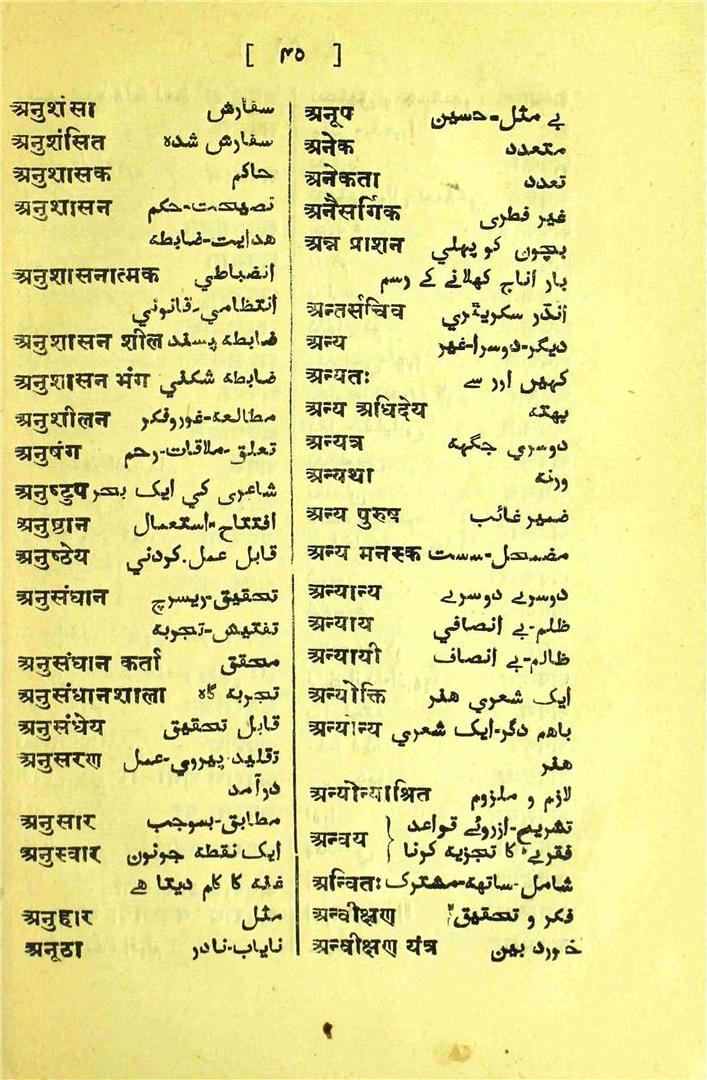 [ ٣٥ ]
अनुशंसा سفارش
अनुशंसित سفارش شدہ
अनुशासक حاکم
अनुशासन نصیحت-حکم
ھدایت-ضابطہ
अनुशासनात्मक انضباطي
انتظامي-قانوني
अनुशासन शील ضابطہ پسند
अनुशासन भंग ضابطہ شکني
अनुशीलन مطالعہ-غوروفکر
अनुषंग تعلق-ملاقات-رحم
अनुष्टुप شاعری کي ایک بحر
अनुष्ठान افتتاح-استعمال
अनुष्ठेय قابل عمل-کردني
अनुसंधान تحقیق-ریسرچ
تفتیش-تجربہ
अनुसंधान कर्ता محقق
अनुसंधानशाला تجربہ گاہ
अनुसंधेय قابل تحقیق
अनुसरण تقلید-پیروي-عمل
درآمد
अनुसार مطابق-بموجب
अनुस्वार ایک نقطہ جونون
غنہ کا کام دیتا ھے
अनुहार مثل
अनूठा نایاب-نادر
अनूप بے مثل-حسین
अनेक متعدد
अनेकता تعدد
अनैसर्गिक غیر فطری
अन्न प्राशन بچون کو پہلي
بار اناج کھلانے کے رسم
अन्तर्सचिव انڈر سکریٹري
अन्य دیگر-دوسرا-غیر
अन्यतः کہیں اور سے
अन्य अधिदेय بھتہ
अन्यत्र دوسري جگھہ
अन्यथा ورنہ
अन्य पुरुष ضمیر غائب
अन्य मनस्क مضمحل-سست
अन्यान्य دوسرے دوسرے
अन्याय ظلم-بے انصافي
अन्यायी ظالم-بے انصاف
अन्योक्ति ایک شعري ھنر
अन्यान्य باھم دگر-ایک شعري
ھنر
अन्योन्याश्रित لازم و ملزوم
अन्वय } تشریح-ازروئے قواعد
فقرے کا تجزیہ کرنا
अन्वितः شامل-ساتھہ-مشترک
अन्वीक्षण فکر و تحقیق
अन्वीक्षण यंत्र خورد بین